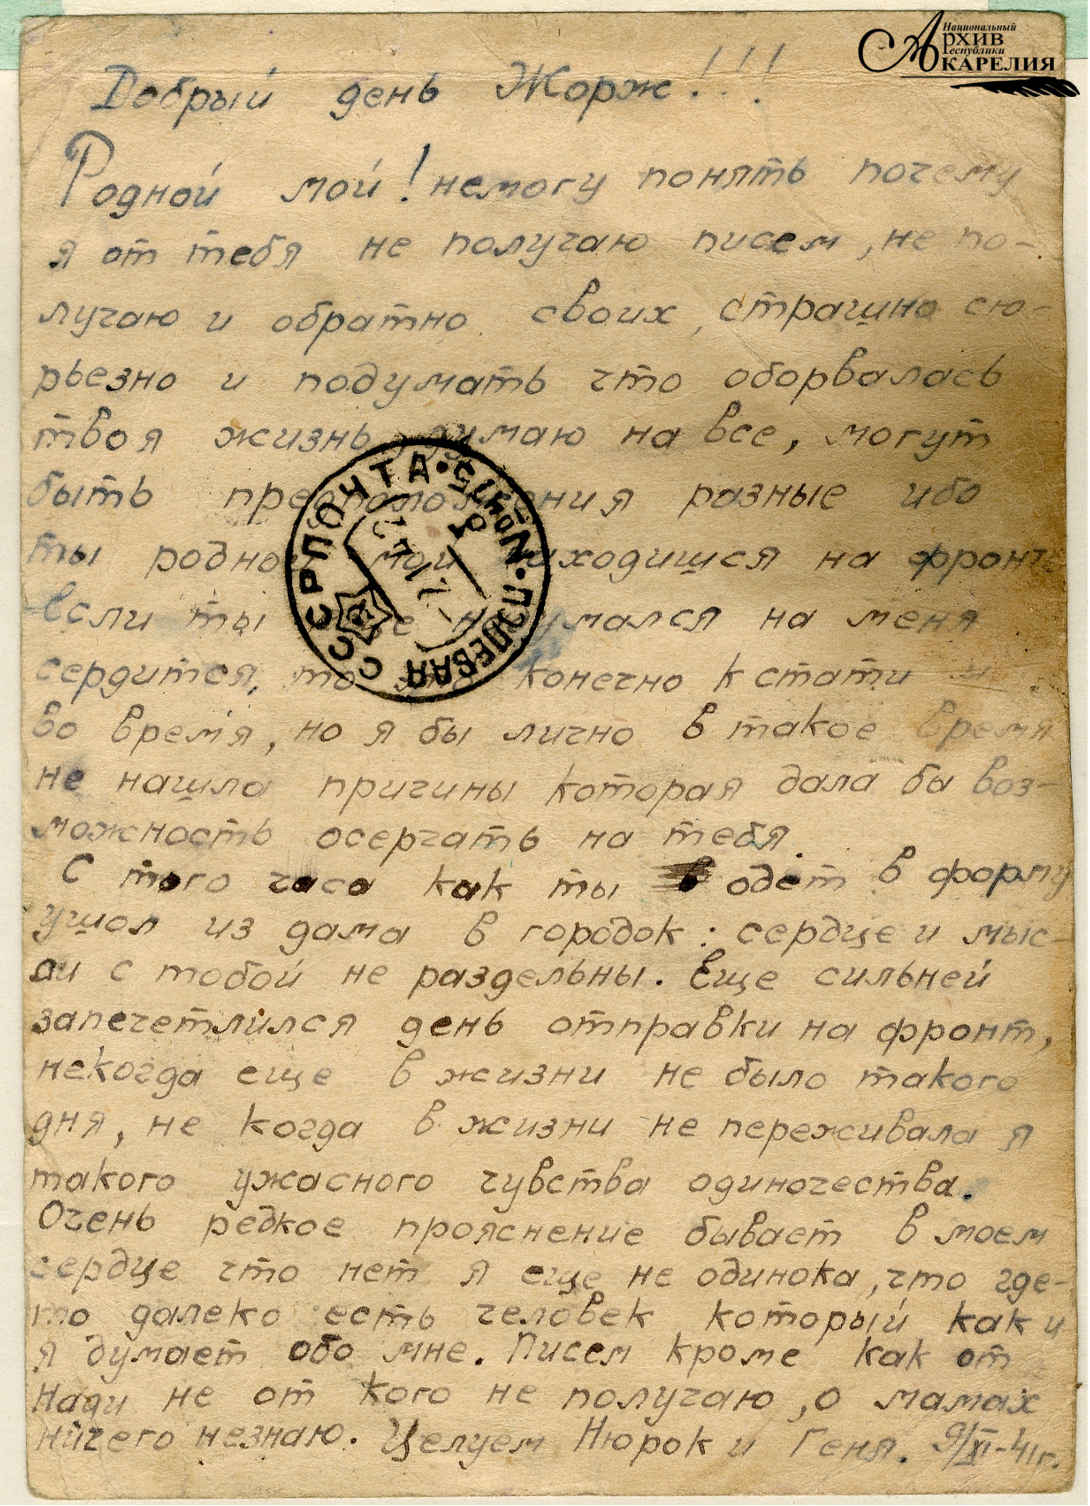 Национальный
АРХИВ
Республики
КАРЕЛИЯ
Добрый день Жорж!!!
Родной мой! немогу понять почему
я от тебя не получаю писем, не по-
лучаю и обратно своих, страшно сю-
рьезно и подумать что оборвалась
твоя жизнь, думаю на все, могут
быть предположения разные ибо
ты родной мой находишся на фронте
Если ты на меня
сердится, то конечно кстати и
во время, но я бы лично в такое время
не нашла причины которая дала бы воз-
можность осерчать на тебя.
С того часа как ты одет в форму
ушол из дама в городок: сердце и мыс-
ли с тобой не раздельны. Еще сильней
запечетлился день отправки на фронт,
некогда еще в жизни не было такого
дня, не когда в жизни не переживала я
такого ужасного чувства одиночества.
Очень редкое прояснение бывает в моем
сердце что нет я еще не одинока, что где-
то далеко есть человек который как и
я думает обо мне. Писем кроме как от
Нади не от кого не получаю, о мамах
ничего незнаю. Целуем Нюрок и Геня. 9/XI-41г.
СССР ПОЧТА
ПОЛЕВАЯ